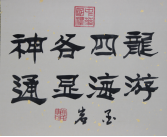 龍游四海
各显神通